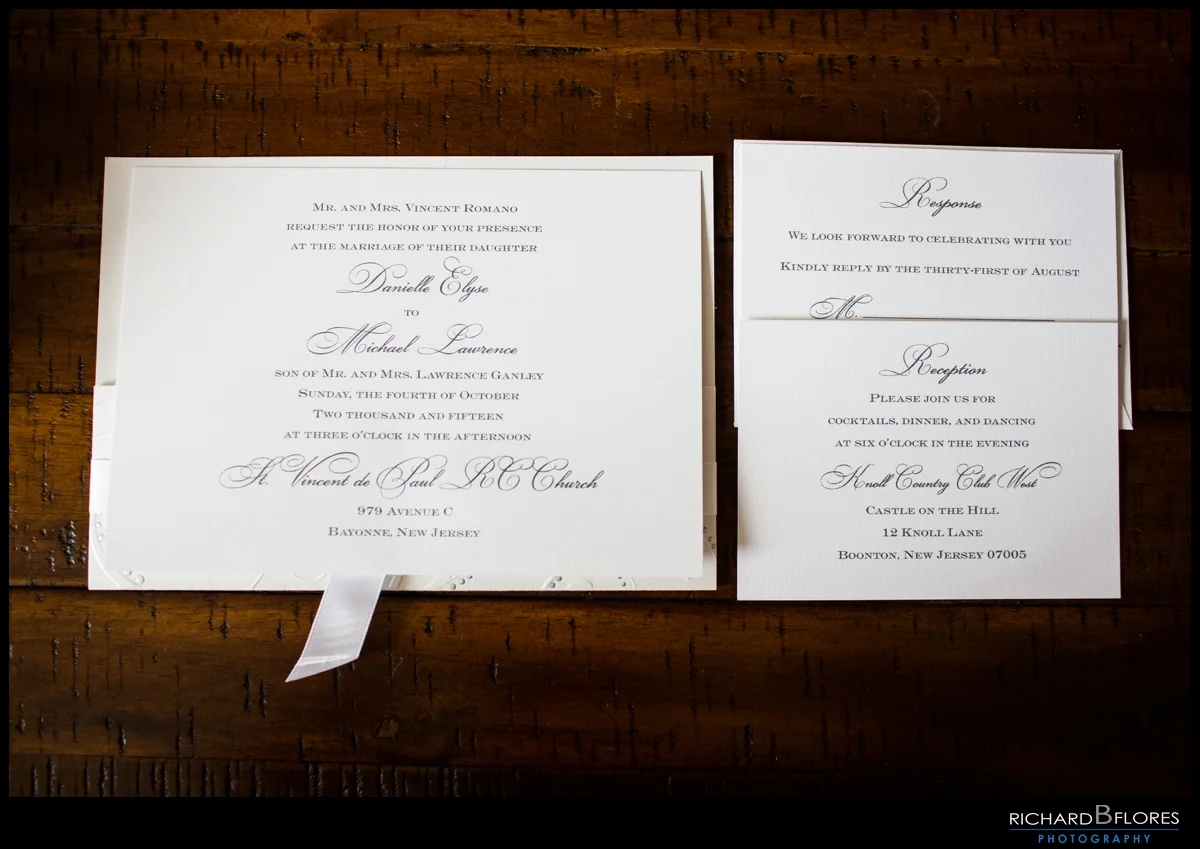 Mr. and Mrs. Vincent Romano
request the honor of your presence
at the marriage of their daughter
Danielle Elyse
to
Michael Lawrence
son of Mr. and Mrs. Lawrence Ganley
Sunday, the fourth of October
Two thousand and fifteen
at three o'clock in the afternoon
St. Vincent de Paul RC Church
979 Avenue C
Bayonne, New Jersey
Response
We look forward to celebrating with you
Kindly reply by the thirty-first of August
M.
Reception
Please join us for
cocktails, dinner, and dancing
at six o'clock in the evening
Knoll Country Club West
Castle on the Hill
12 Knoll Lane
Boonton, New Jersey 07005
RICHARD B FLORES
PHOTOGRAPHY